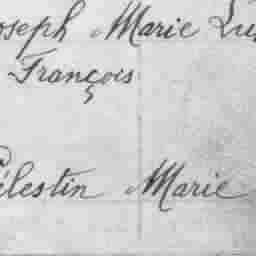 Joseph Marie
François
Célestin Marie